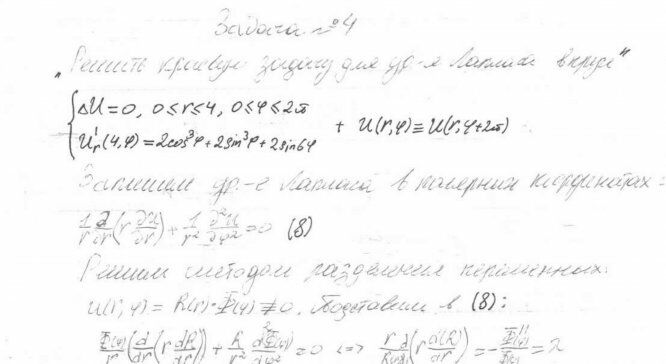 Задача №4
„Решить краевую задачу для ур-я Лапласа в круге"
{ ΔU=0, 0≤r≤4, 0≤φ≤2π
U'r(4,φ)=2cos³φ+2sin³φ+2sin6φ + U(r,φ)≡U(r,φ+2π)
Запишем ур-е Лапласа в полярных координатах:
1/r ∂/∂r (r ∂u/∂r) + 1/r² ∂²u/∂φ² =0 (8)
Решим методом разделения переменных:
u(r,φ) = R(r)·Φ(φ) ≢0. Подставим в (8):
Φ(φ)/r (d/dr (r dR/dr)) + R/r² d²Φ(φ)/dφ² =0 <=> r d/R(r)dr (r d(R)/dr) = -Φ''(φ)/Φ(φ) = λ